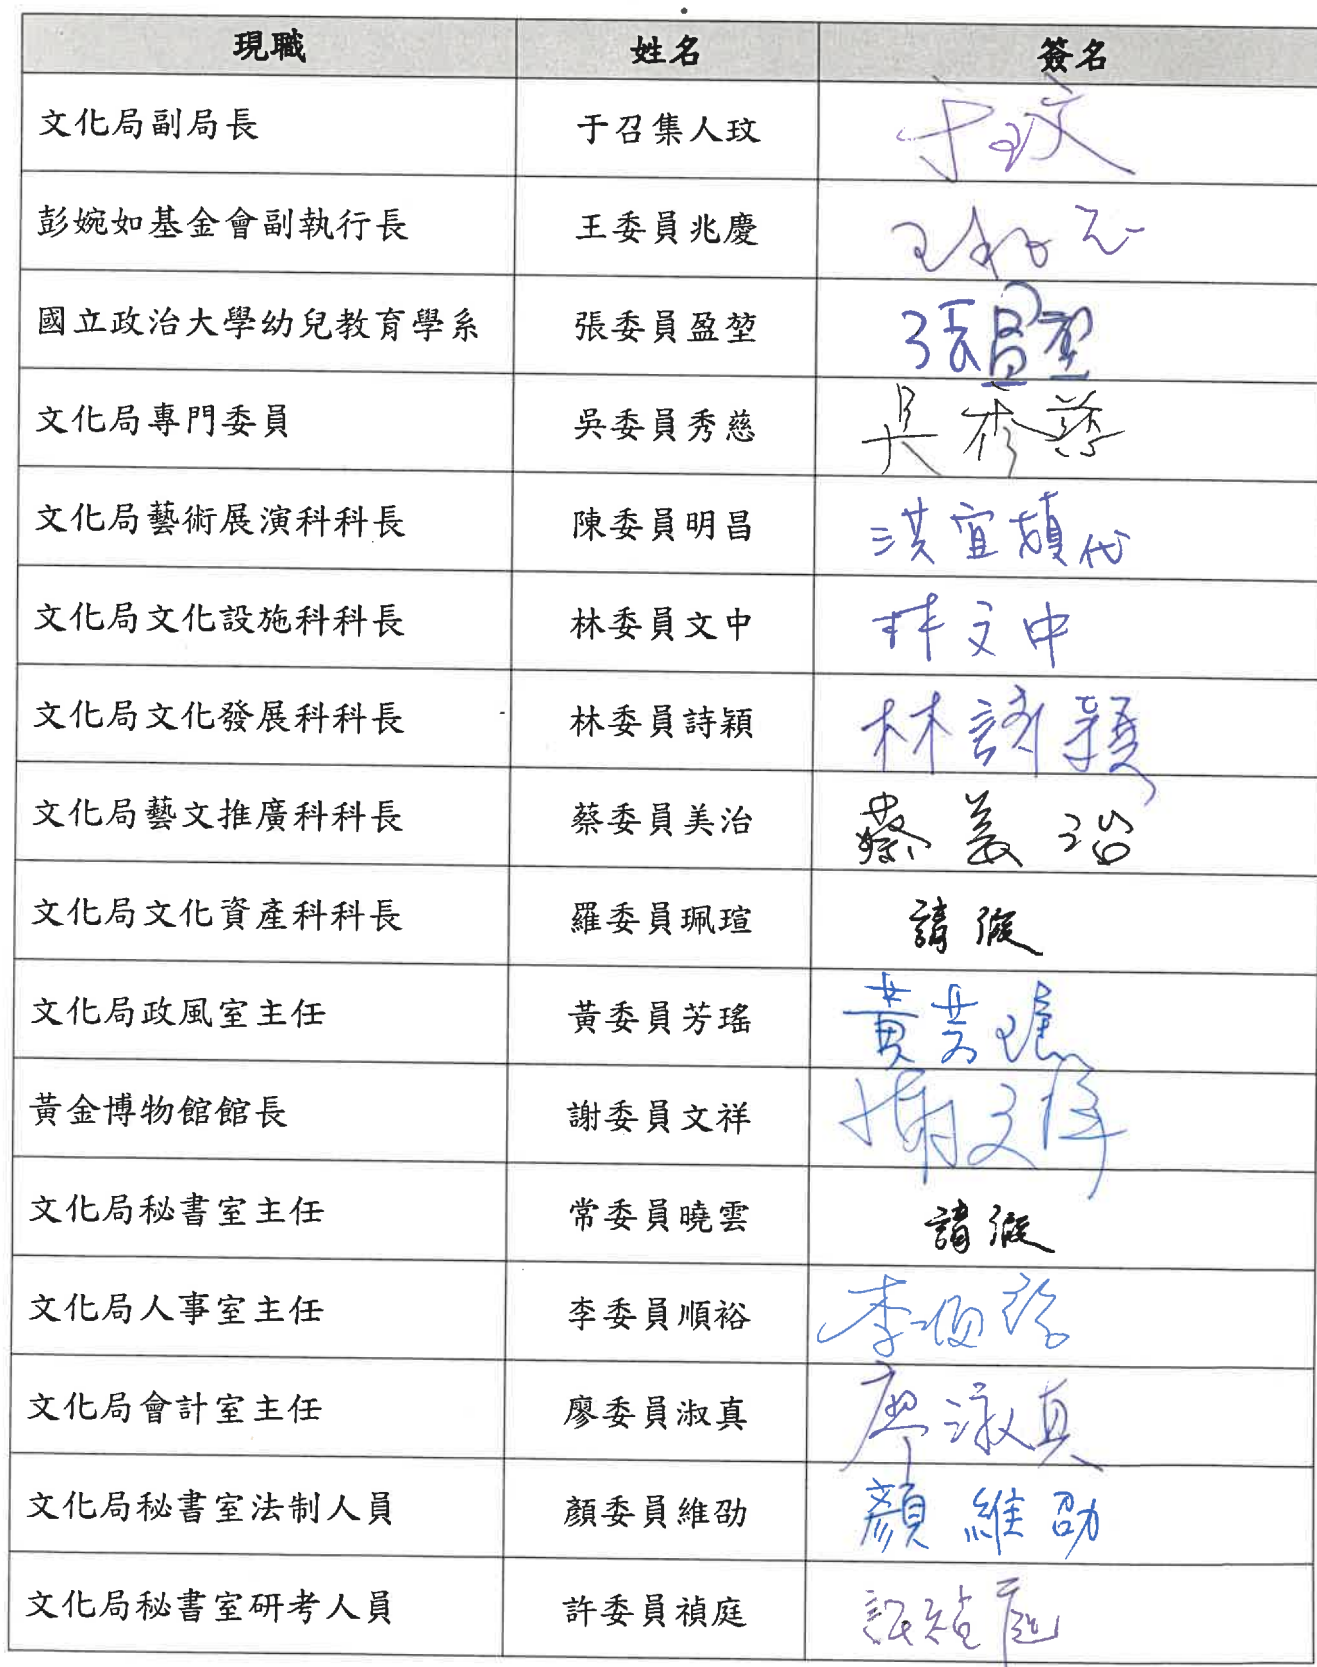 現職 姓名 簽名
文化局副局長 于召集人玟 于玟
彭婉如基金會副執行長 王委員兆慶 王兆慶
國立政治大學幼兒教育學系 張委員盈堃 張盈堃
文化局專門委員 吳委員秀慈 吳秀慈
文化局藝術展演科科長 陳委員明昌 洪宜頡代
文化局文化設施科科長 林委員文中 林文中
文化局文化發展科科長 林委員詩穎 林詩穎
文化局藝文推廣科科長 蔡委員美治 蔡美治
文化局文化資產科科長 羅委員珮瑄 請假
文化局政風室主任 黃委員芳瑤 黃芳瑤
黃金博物館館長 謝委員文祥 謝文祥
文化局秘書室主任 常委員曉雲 請假
文化局人事室主任 李委員順裕 李順裕
文化局會計室主任 廖委員淑真 廖淑真
文化局秘書室法制人員 顏委員維劭 顏維劭
文化局秘書室研考人員 許委員禎庭 許禎庭